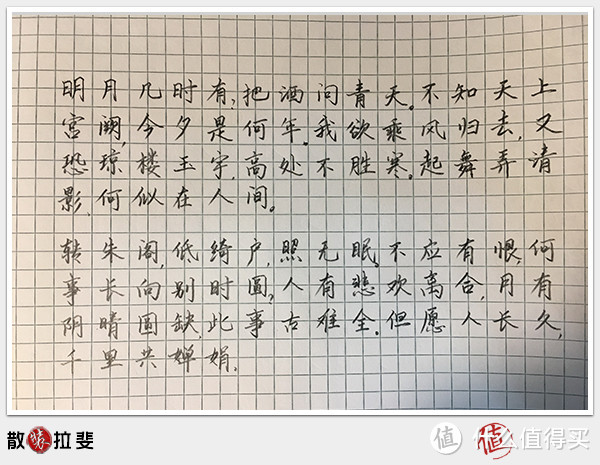 明月几时有,把酒问青天。不知天上
宫阙,今夕是何年。我欲乘风归去,又
恐琼楼玉宇,高处不胜寒。起舞弄清
影,何似在人间。
转朱阁,低绮户,照无眠。不应有恨,何
事长向别时圆,人有悲欢离合,月有
阴晴圆缺,此事古难全。但愿人长久,
千里共婵娟.
散 拉斐
值 什么值得买